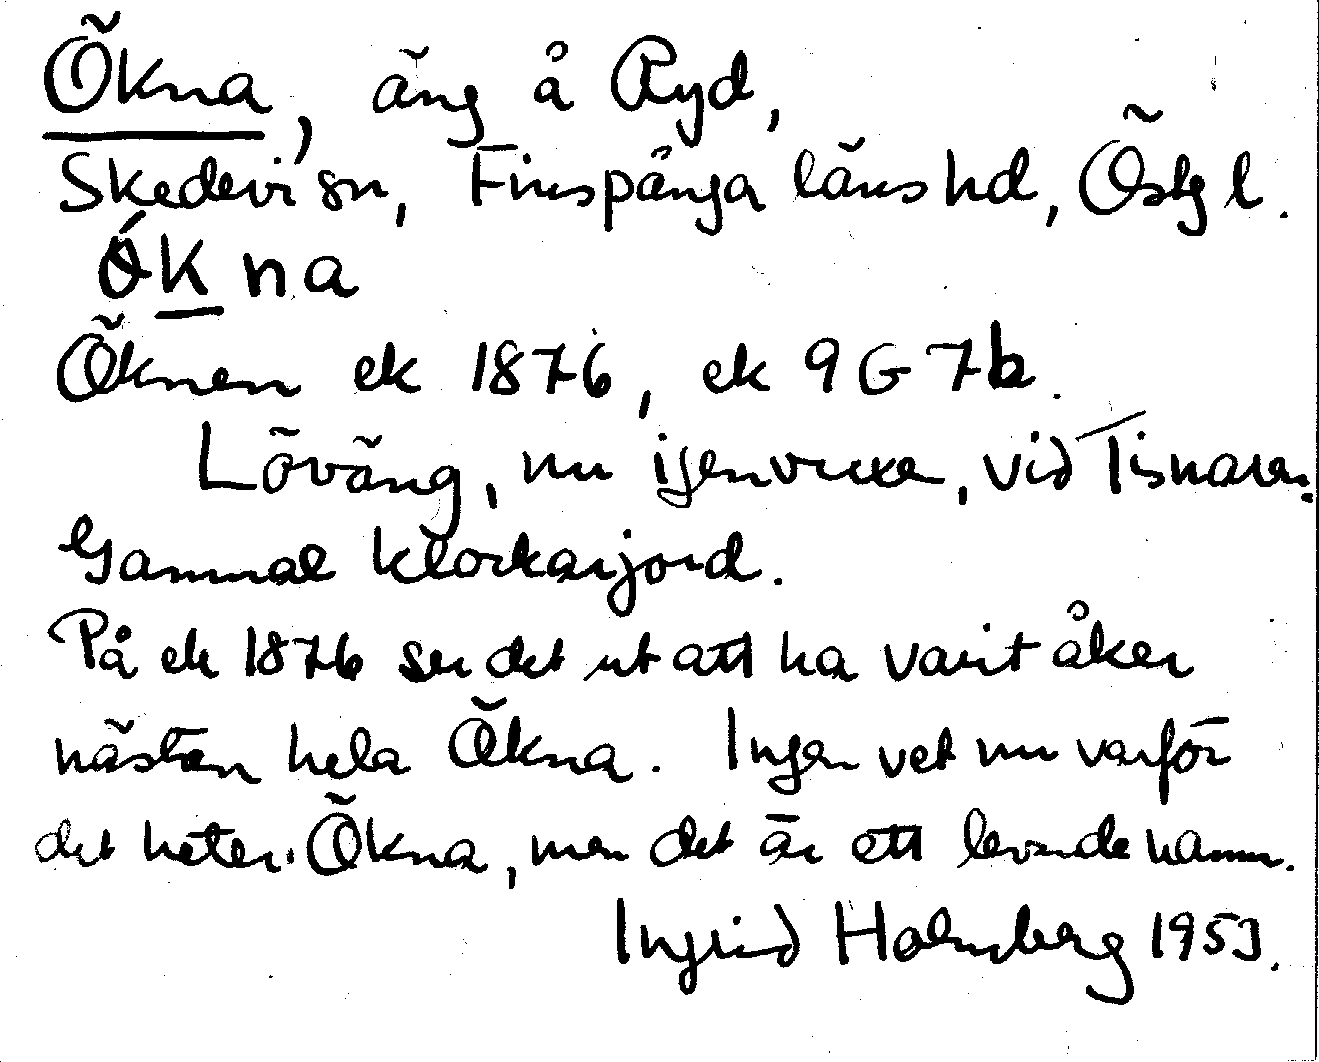 Ökna, äng å Ryd,
Skedevi sn, Finspånga läns hd, Östg l.
ǿ́kna
Öknen ek 1876, ek 9G7b.
Löväng, nu igenvuxen, vid Tisnaren.
Gammal klockarjord.
På ek 1876 ser det ut att ha varit åker
nästan hela Ökna. Ingen vet nu varför
det heter Ökna, men det är ett levande namn.
Ingrid Holmberg 1953.